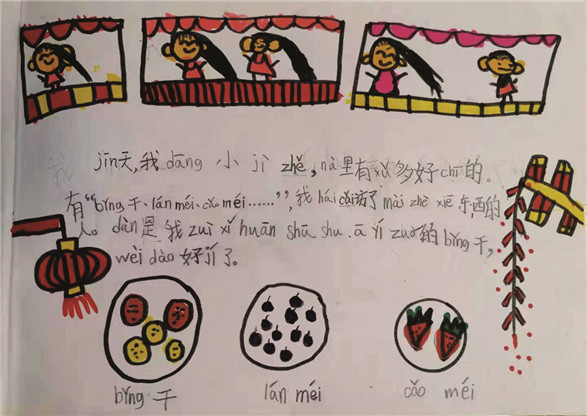 jīn天,我dāng 小 jì zhě,nà里有xǔ多好chī的。
有“bǐng干、lán méi、cǎo méi……”,我hái cǎi访了mài zhè xiē东西的
人。dàn是我zuì xǐ huān shū shu、ā yí zuò的bǐng干,
wèi dào好jí了。
bǐng 干
lán méi
cǎo méi